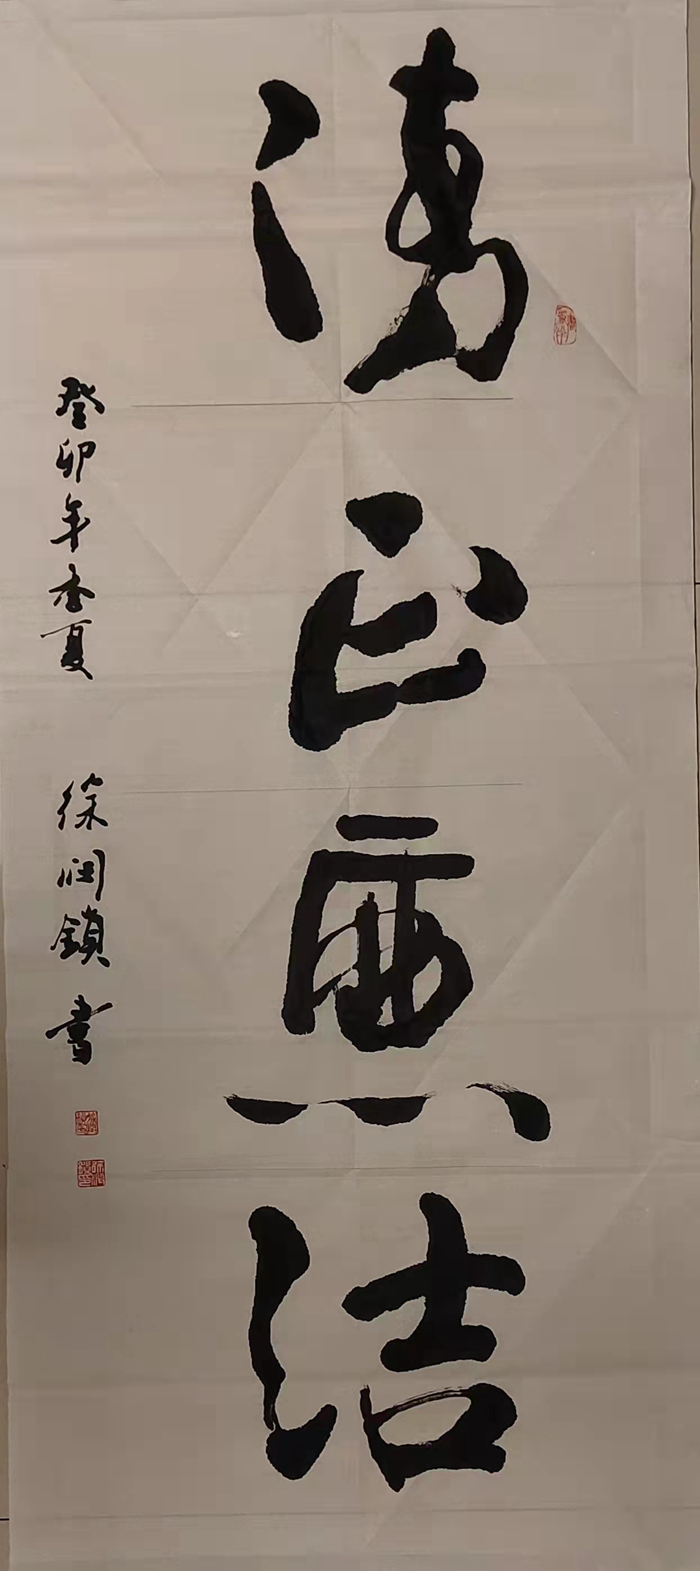 清正廉洁
癸卯年季夏
徐润锁书